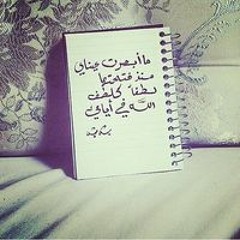 ما أبصرت عيناي
منذ فتحتها
لطفاً كلطف
الله في أيامي